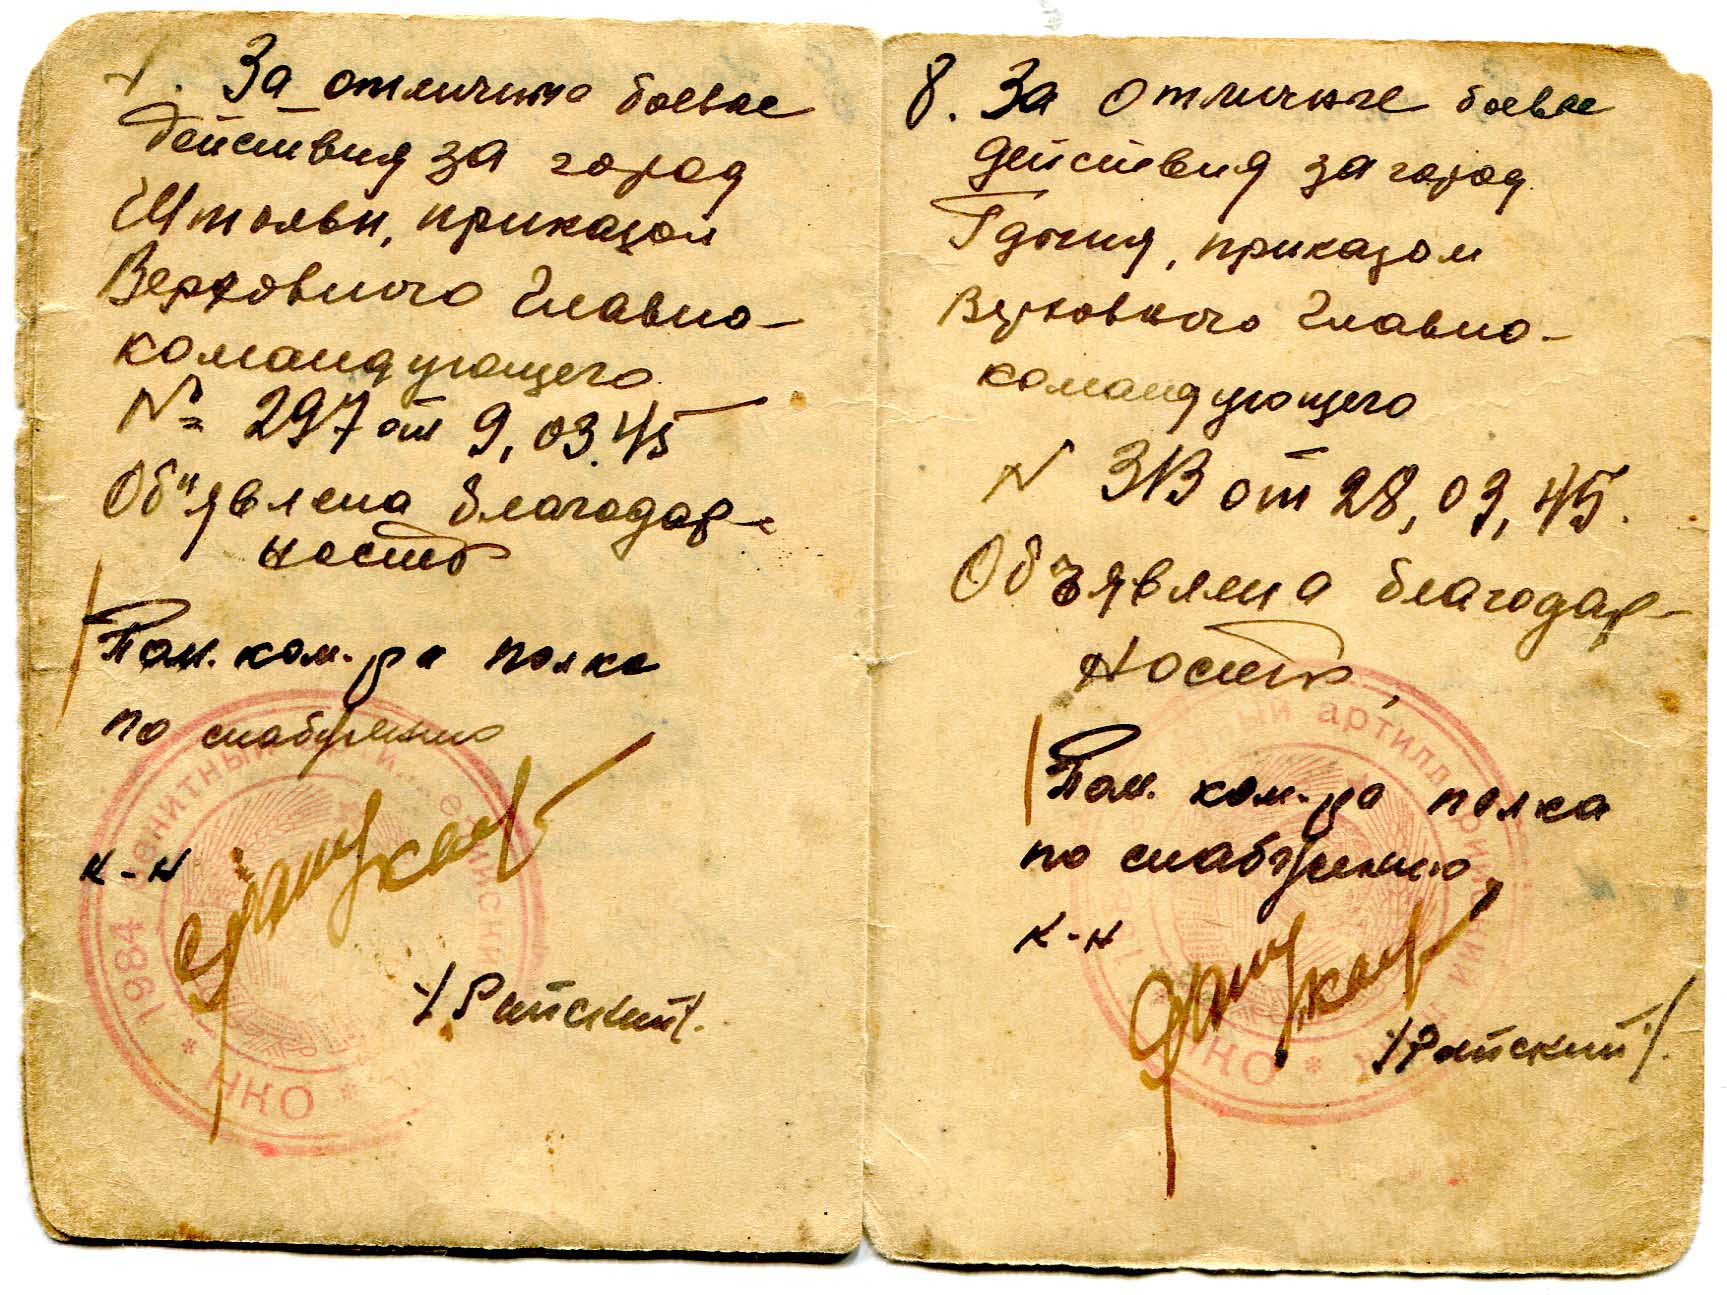 7. За отличные боевые
действия за город
Штольп, приказом
Верховного Главно-
командующего
№ 297 от 9,03.45
Об"явлена благодар-
ность
Пом. ком-ра полка
по снабжению
к-н
/Райский/.
1984 зенитный
НКО
8. За отличные боевые
действия за город
Гдыня, приказом
Верховного Главно-
командующего
N 313 от 28,03,45.
Объявлена благодар-
ность,
Пом. ком-ра полка
по снабжению,
к-н
/Райский/.
артиллерийский
НКО